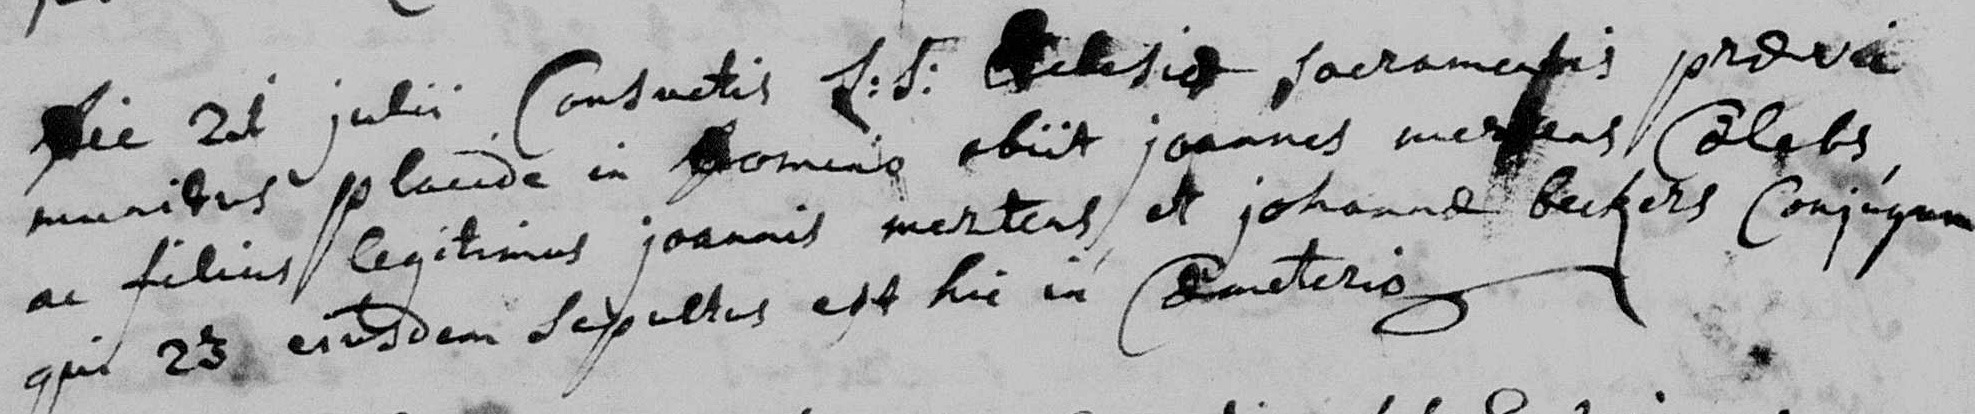 Die 21 julii Consuetis S: S: Ecclesiæ sacramentis prævie
munitus placide in Domino obiit joannes mertens Cælebs,
ac filius legitimus joannis mertens, et johannæ beckers Conjugum
qui 23 eiusdem Sepultus est hic in Cæmeterio